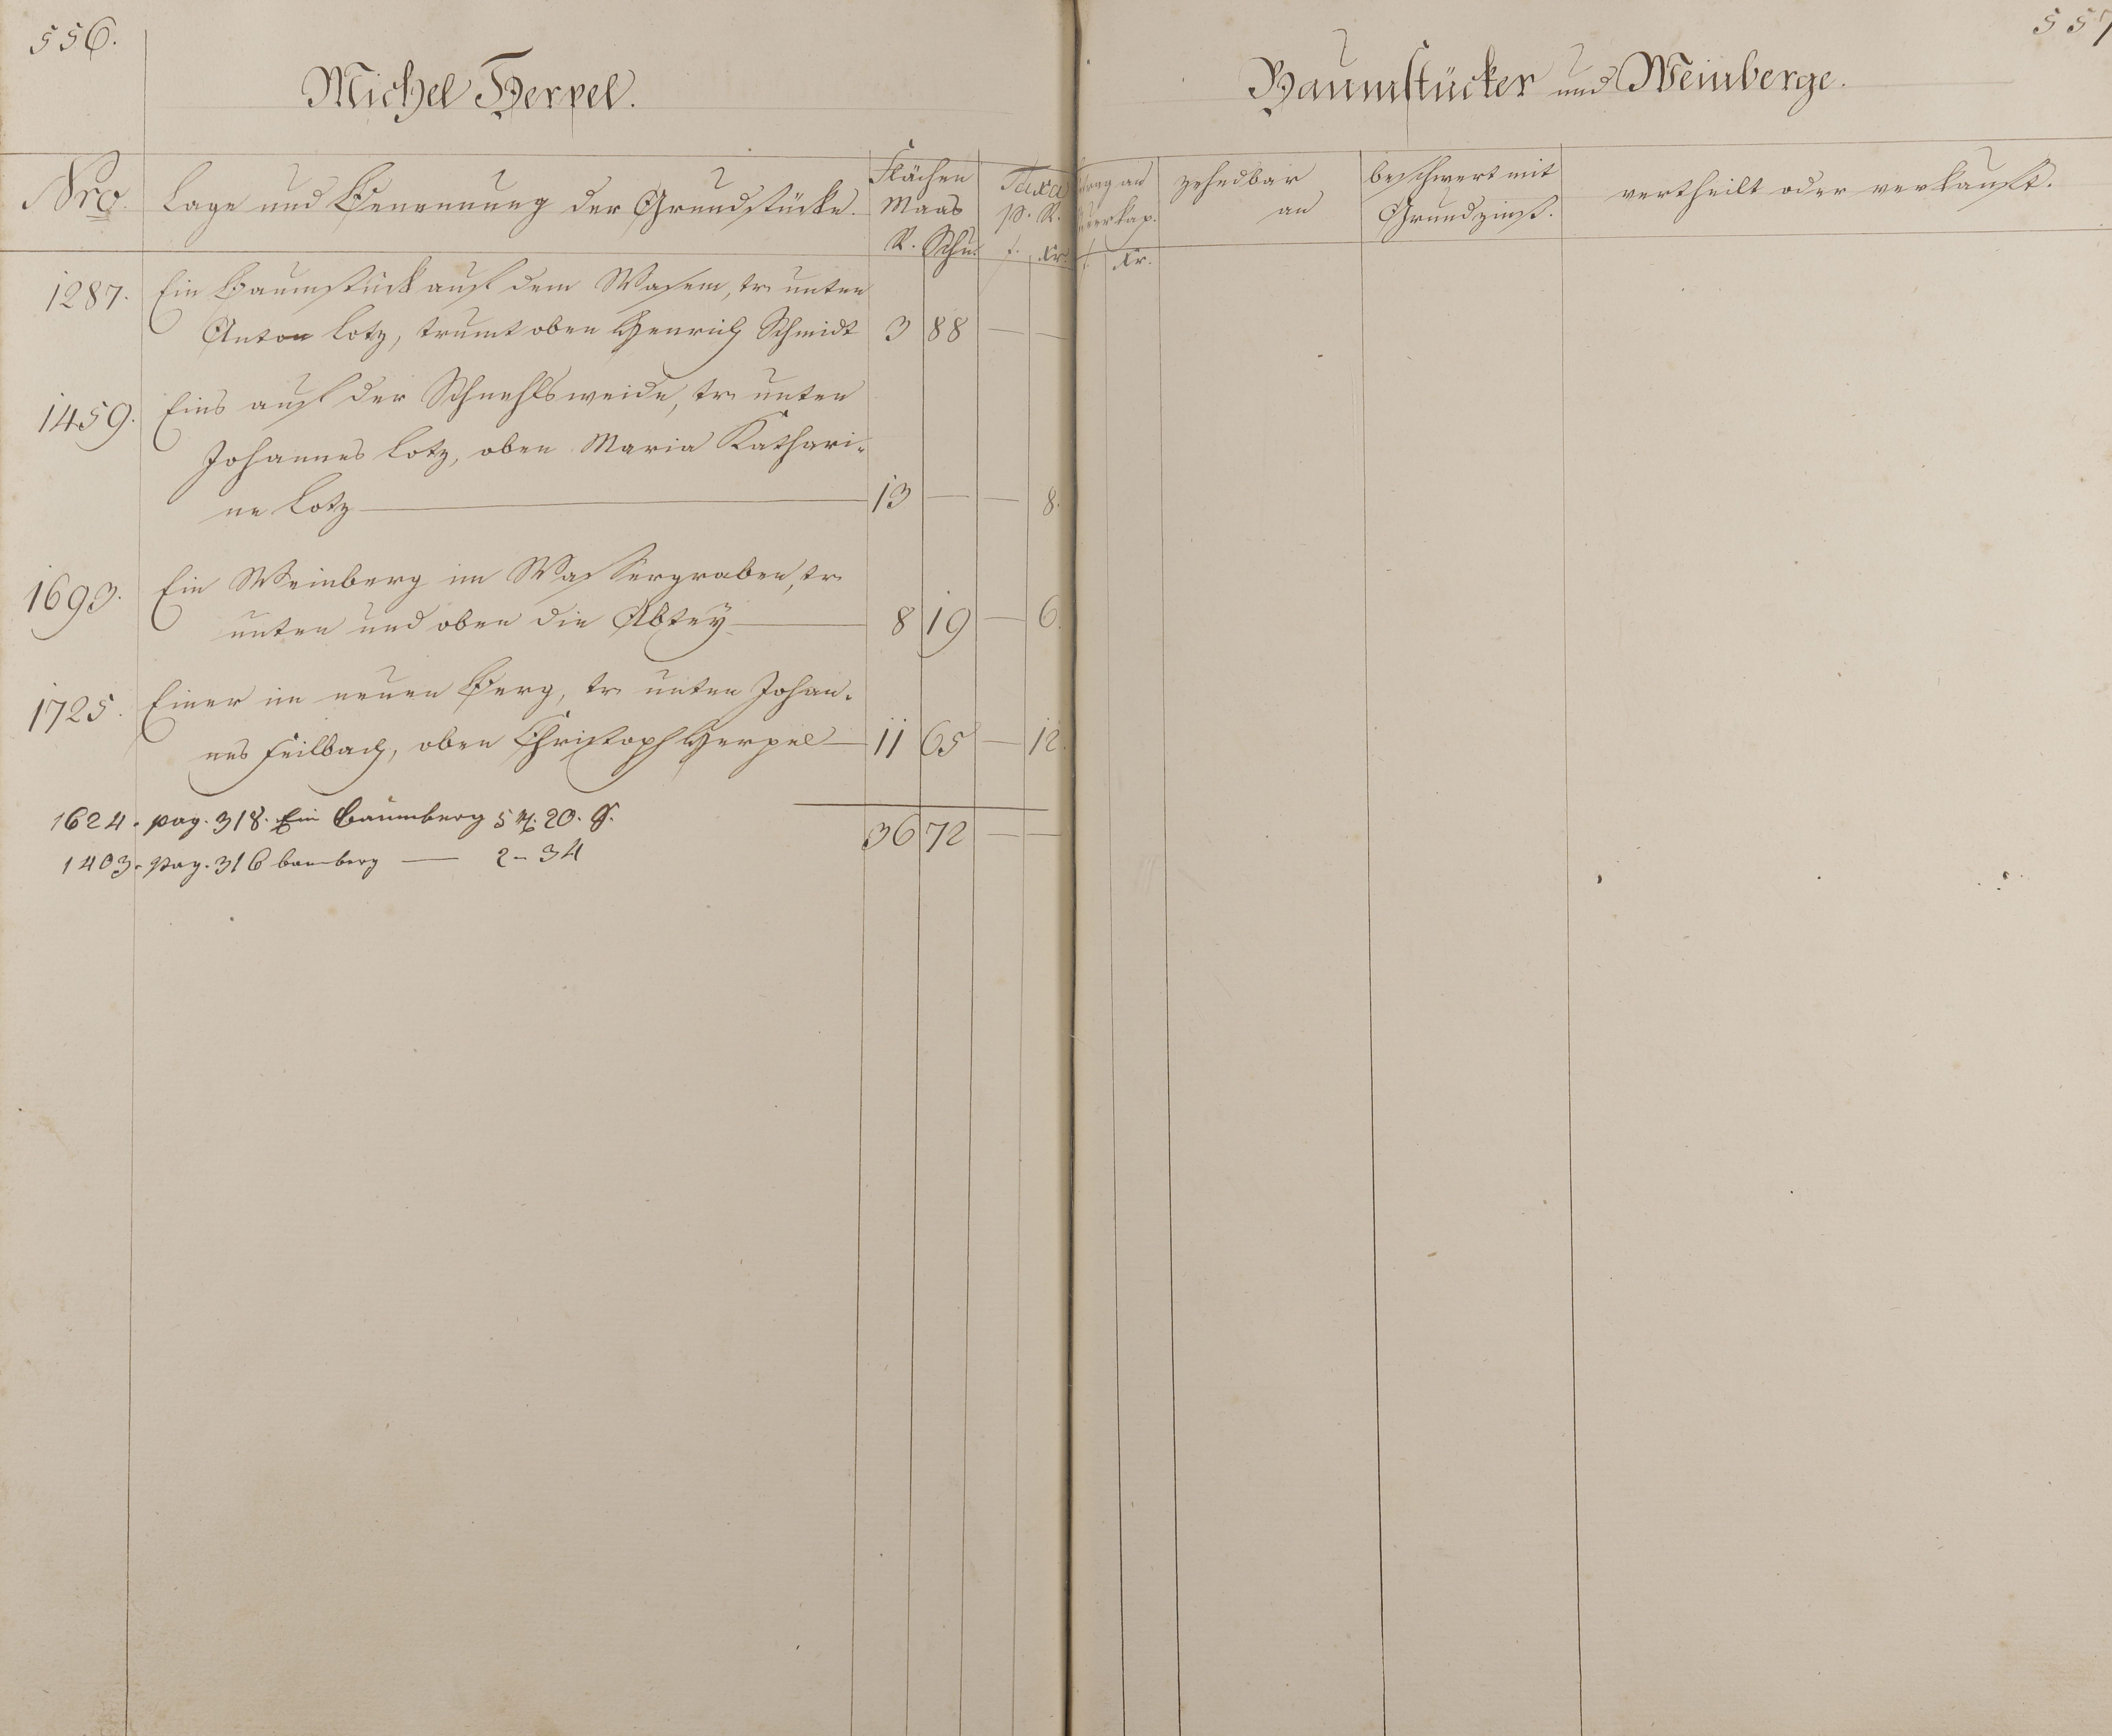 556.
Michel Herpel.
Nro.
Lage und Benennung der Grundstücke.
Flächen
Maas
R. Schu.
Taxa
p. R.
f. Xr.
1287. Ein Baumstück auf dem Wasem, tr. unten
Anton Lotz, trumt oben Henrich Schmidt 3 88 — —
1459. Eins auf der Schnehlsweide, tr. unten
Johannes Lotz, oben Maria Kathari-
ne Lotz — 13 — — 8.
1693. Ein Weinberg im Wassergraben, tr.
unten und oben die Abtey — 8 19 — 6.
1725. Einer im neuen Berg, tr. unten Johan-
nes Feilbach, oben Christoph Herpel — 11 65 — 12.
36 72 — —
1624. pag. 318. Ein Baumberg 5 R. 20. S.
1403. pag. 316 bamberg — 2 – 34
557
Baumstücker und Weinberge.
trag an
f. Xr.
zehedbar
an
beschwert mit
Grundzinß.
vertheilt oder verkauft.